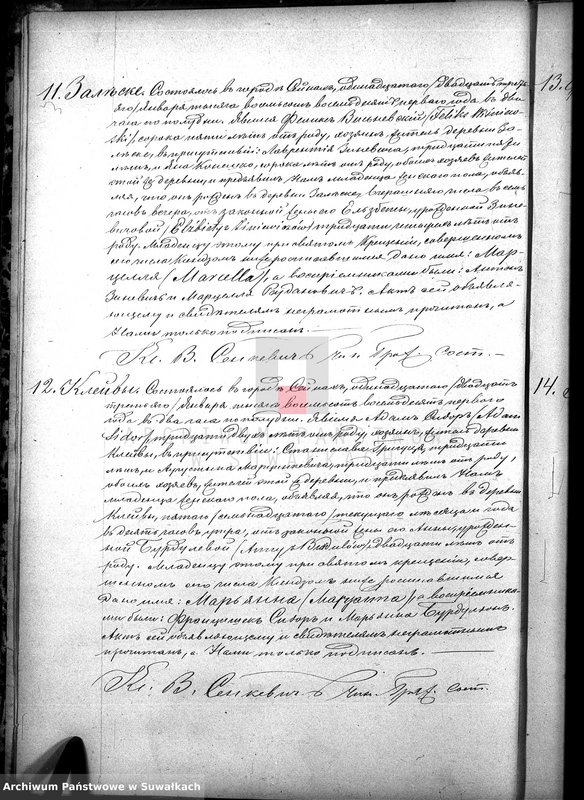 11. Залѣске. Состоялось въ городѣ Сейнахъ, одинадцатаго /двадцать треть-
яго/ Января тысяча восемьсотъ восемьдесятъ перваго года въ два
часа по полудни. Явился Феликсъ /Feliks
сорока пяти лѣтъ отъ роду, хозяинъ, житель деревни За-
лѣске, въ присутствіи: Лаврентія тридцати
лѣтъ, и сорока лѣтъ отъ роду, обоихъ хозяевъ, жителей
той же деревни, и предъявилъ Намъ младенца женскаго пола, объяв-
ляя, что онъ рожденъ въ деревни Залѣске, въ семь
часовъ вечера, отъ законной жены его Ельзбеты, урожденной
/Elżbiety тридцати четырехъ лѣтъ отъ
роду. Младенцу этому при святомъ крещеніи, совершенномъ
его числа Ксендзомъ нижеподписавшимся дано имя: Мар-
целля /Marcella/, а воспріемниками были: Антонъ
и Марцелла Актъ сей объявля-
ющему и свидѣтелямъ неграмотнымъ прочитанъ, а
Нами только подписанъ.
Кс. В. Сенкевичъ Чин. Гр. Сост.
12. Клейвы. Состоялось въ городѣ Сейнахъ, одинадцатаго /двадцать
третьяго/ Января тысяча восемьсотъ восемьдесятъ перваго
года въ два часа по полудни. Явился Адамъ Сидоръ /Adam
Sidor/ тридцати двухъ лѣтъ отъ роду, хозяинъ, житель деревни
Клейвы, въ присутствіи: Станислава тридцати
лѣтъ, и Августина тридцати лѣтъ отъ роду,
обоихъ хозяевъ, жителей этой же деревни, и предъявилъ Намъ
младенца женскаго пола, объявляя, что онъ рожденъ въ деревни
Клейвы, пятаго /семнадцатаго/ текущаго мѣсяца и года
въ десять часовъ утра, отъ законной жены его Анны, урожден-
ной Бурдулевой /Anny z двадцати лѣтъ отъ
роду. Младенцу этому при святомъ крещеніи, совер-
шенномъ его числа Ксендзомъ нижеподписавшимся
дано имя: Марьянна /Maryanna/, а воспріемника-
ми были: Францишекъ Сидоръ и Марьянна
Актъ сей объявляющему и свидѣтелямъ неграмотнымъ
прочитанъ, а Нами только подписанъ.
Кс. В. Сенкевичъ Чин. Гр. Сост.
13.
14.
Archiwum Państwowe w Suwałkach